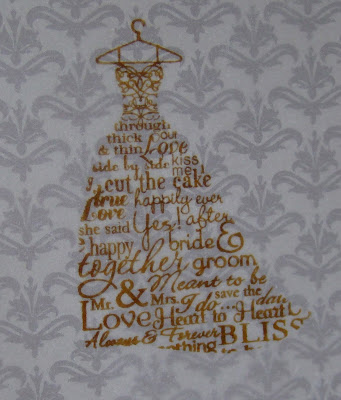 through
thick out
& thin Love
side by side kiss me
cut the cake
true happily ever
Love
she said Yes! after
happy bride &
together groom
Meant to be
Mr. & Mrs. I do... save the day
Love Heart to Heart
Always & Forever BLISS